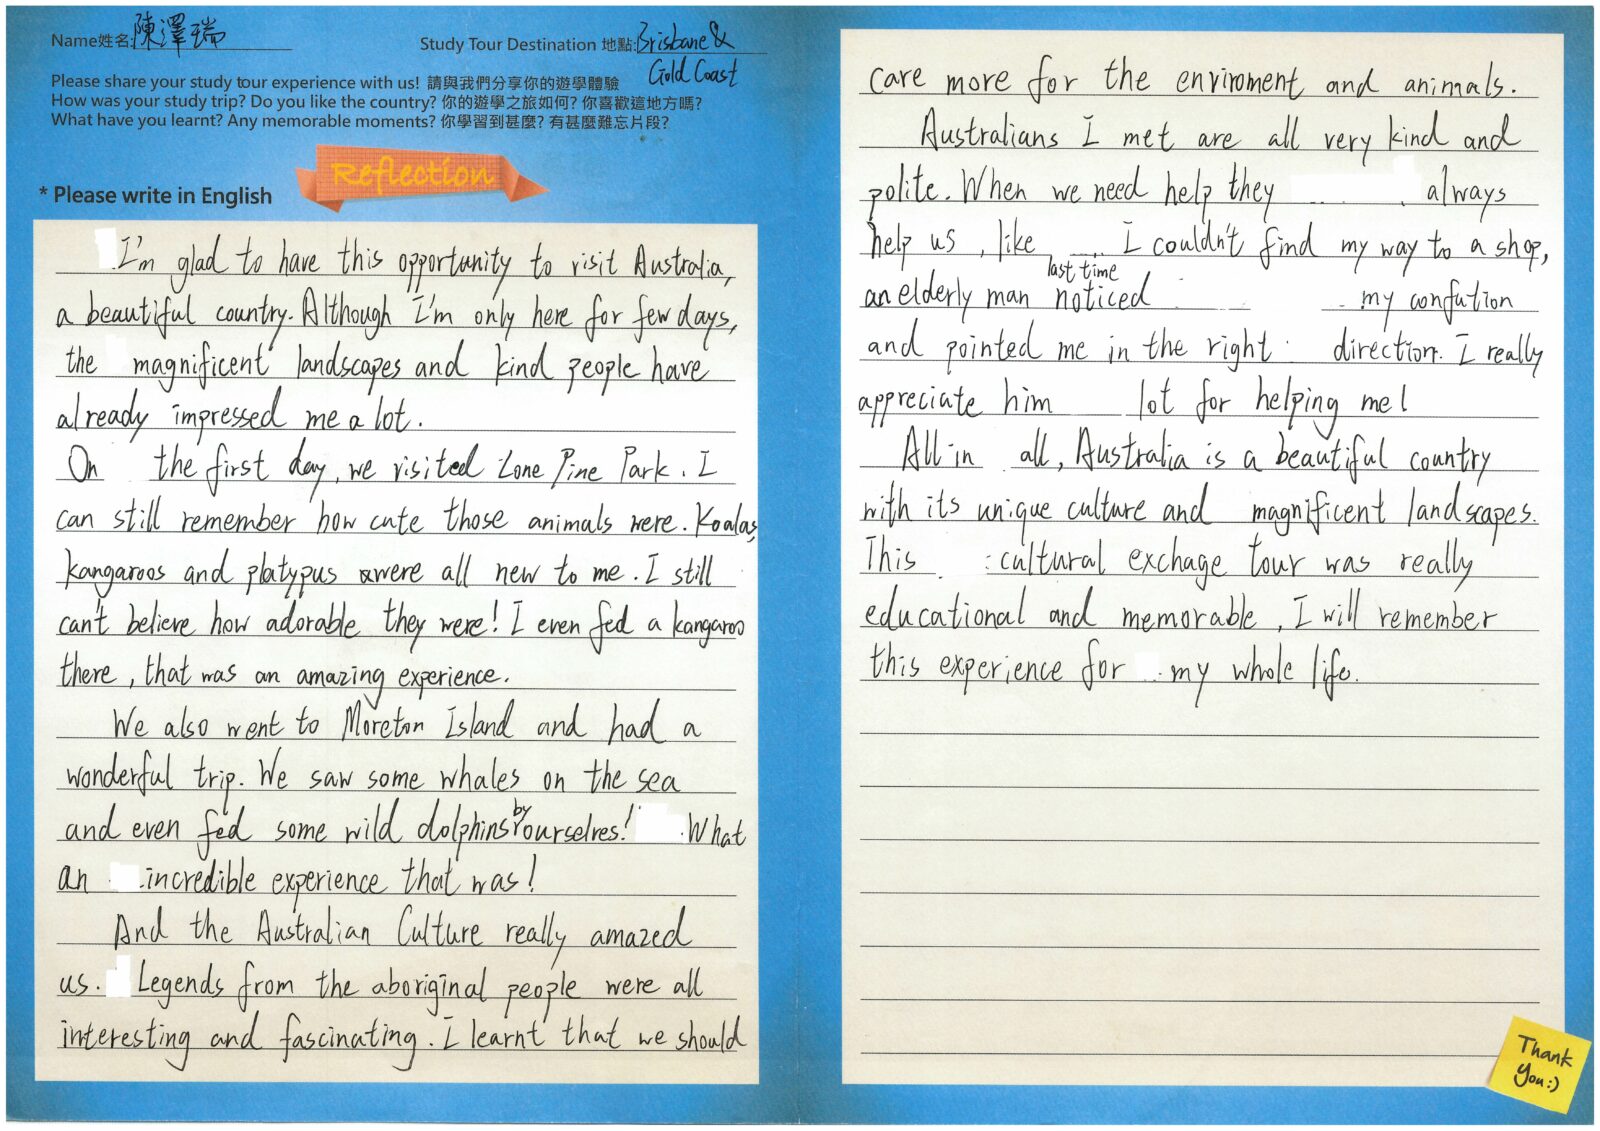 Name姓名:陳澤瑞
Study Tour Destination 地點:Brisbane &
Gold Coast
Please share your study tour experience with us! 請與我們分享你的遊學體驗
How was your study trip? Do you like the country? 你的遊學之旅如何? 你喜歡這地方嗎?
What have you learnt? Any memorable moments? 你學習到甚麼? 有甚麼難忘片段?
Reflection
* Please write in English
I'm glad to have this opportunity to visit Australia,
a beautiful country. Although I'm only here for few days,
the magnificent landscapes and kind people have
already impressed me a lot.
On the first day, we visited Lone Pine Park. I
can still remember how cute those animals were. Koalas,
kangaroos and platypus were all new to me. I still
can't believe how adorable they were! I even fed a kangaroo
there, that was an amazing experience.
We also went to Moreton Island and had a
wonderful trip. We saw some whales on the sea
and even fed some wild dolphins by ourselves! What
an incredible experience that was!
And the Australian Culture really amazed
us. Legends from the aboriginal people were all
interesting and fascinating. I learnt that we should
care more for the enviroment and animals.
Australians I met are all very kind and
polite. When we need help they always
help us, like I couldn't find my way to a shop,
last time
an elderly man noticed my confution
and pointed me in the right direction. I really
appreciate him lot for helping me!
All in all, Australia is a beautiful country
with its unique culture and magnificent landscapes.
This cultural exchage tour was really
educational and memorable, I will remember
this experience for my whole life.
Thank
You:)